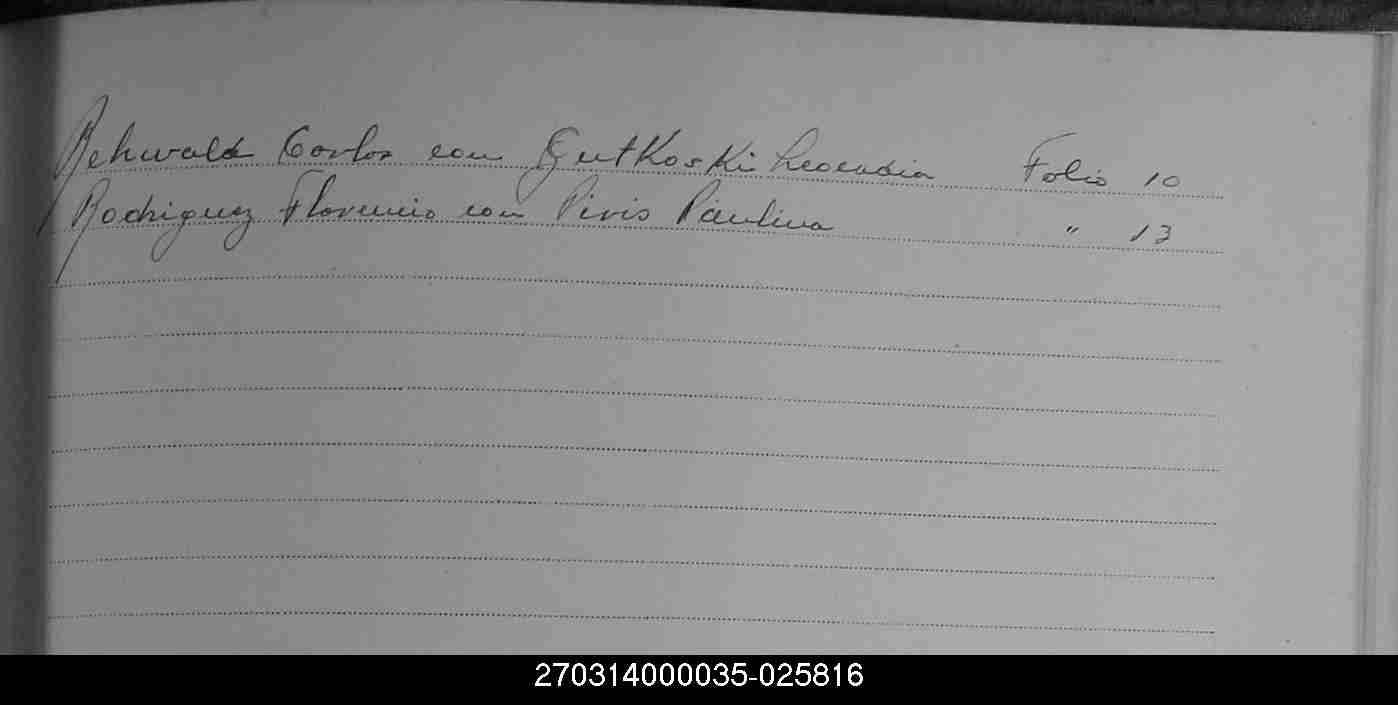 Rehwald Carlos con Gutkoski Leocadia Folio 10
Rodriguez Florencio con Pivis Paulina " 13
270314000035-025816